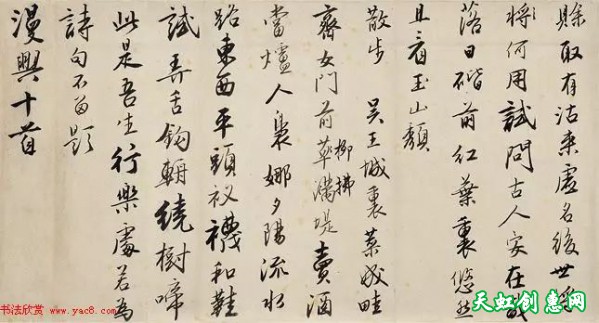 賒取有沽來虛名後世
將何用試問古人安在哉
落日階前紅葉裏悠然
且看玉山頹
散步 吳王城裏菜成畦
柳拂
齊女門前草滿堤賣酒
當爐人裊娜夕陽流水
路東西平頭衩襪和鞋
試弄舌鉤輈繞樹啼
此是吾生行樂處若為
詩句不留題
漫興十首
书法欣赏
www.yac8.com
天虹创惠网